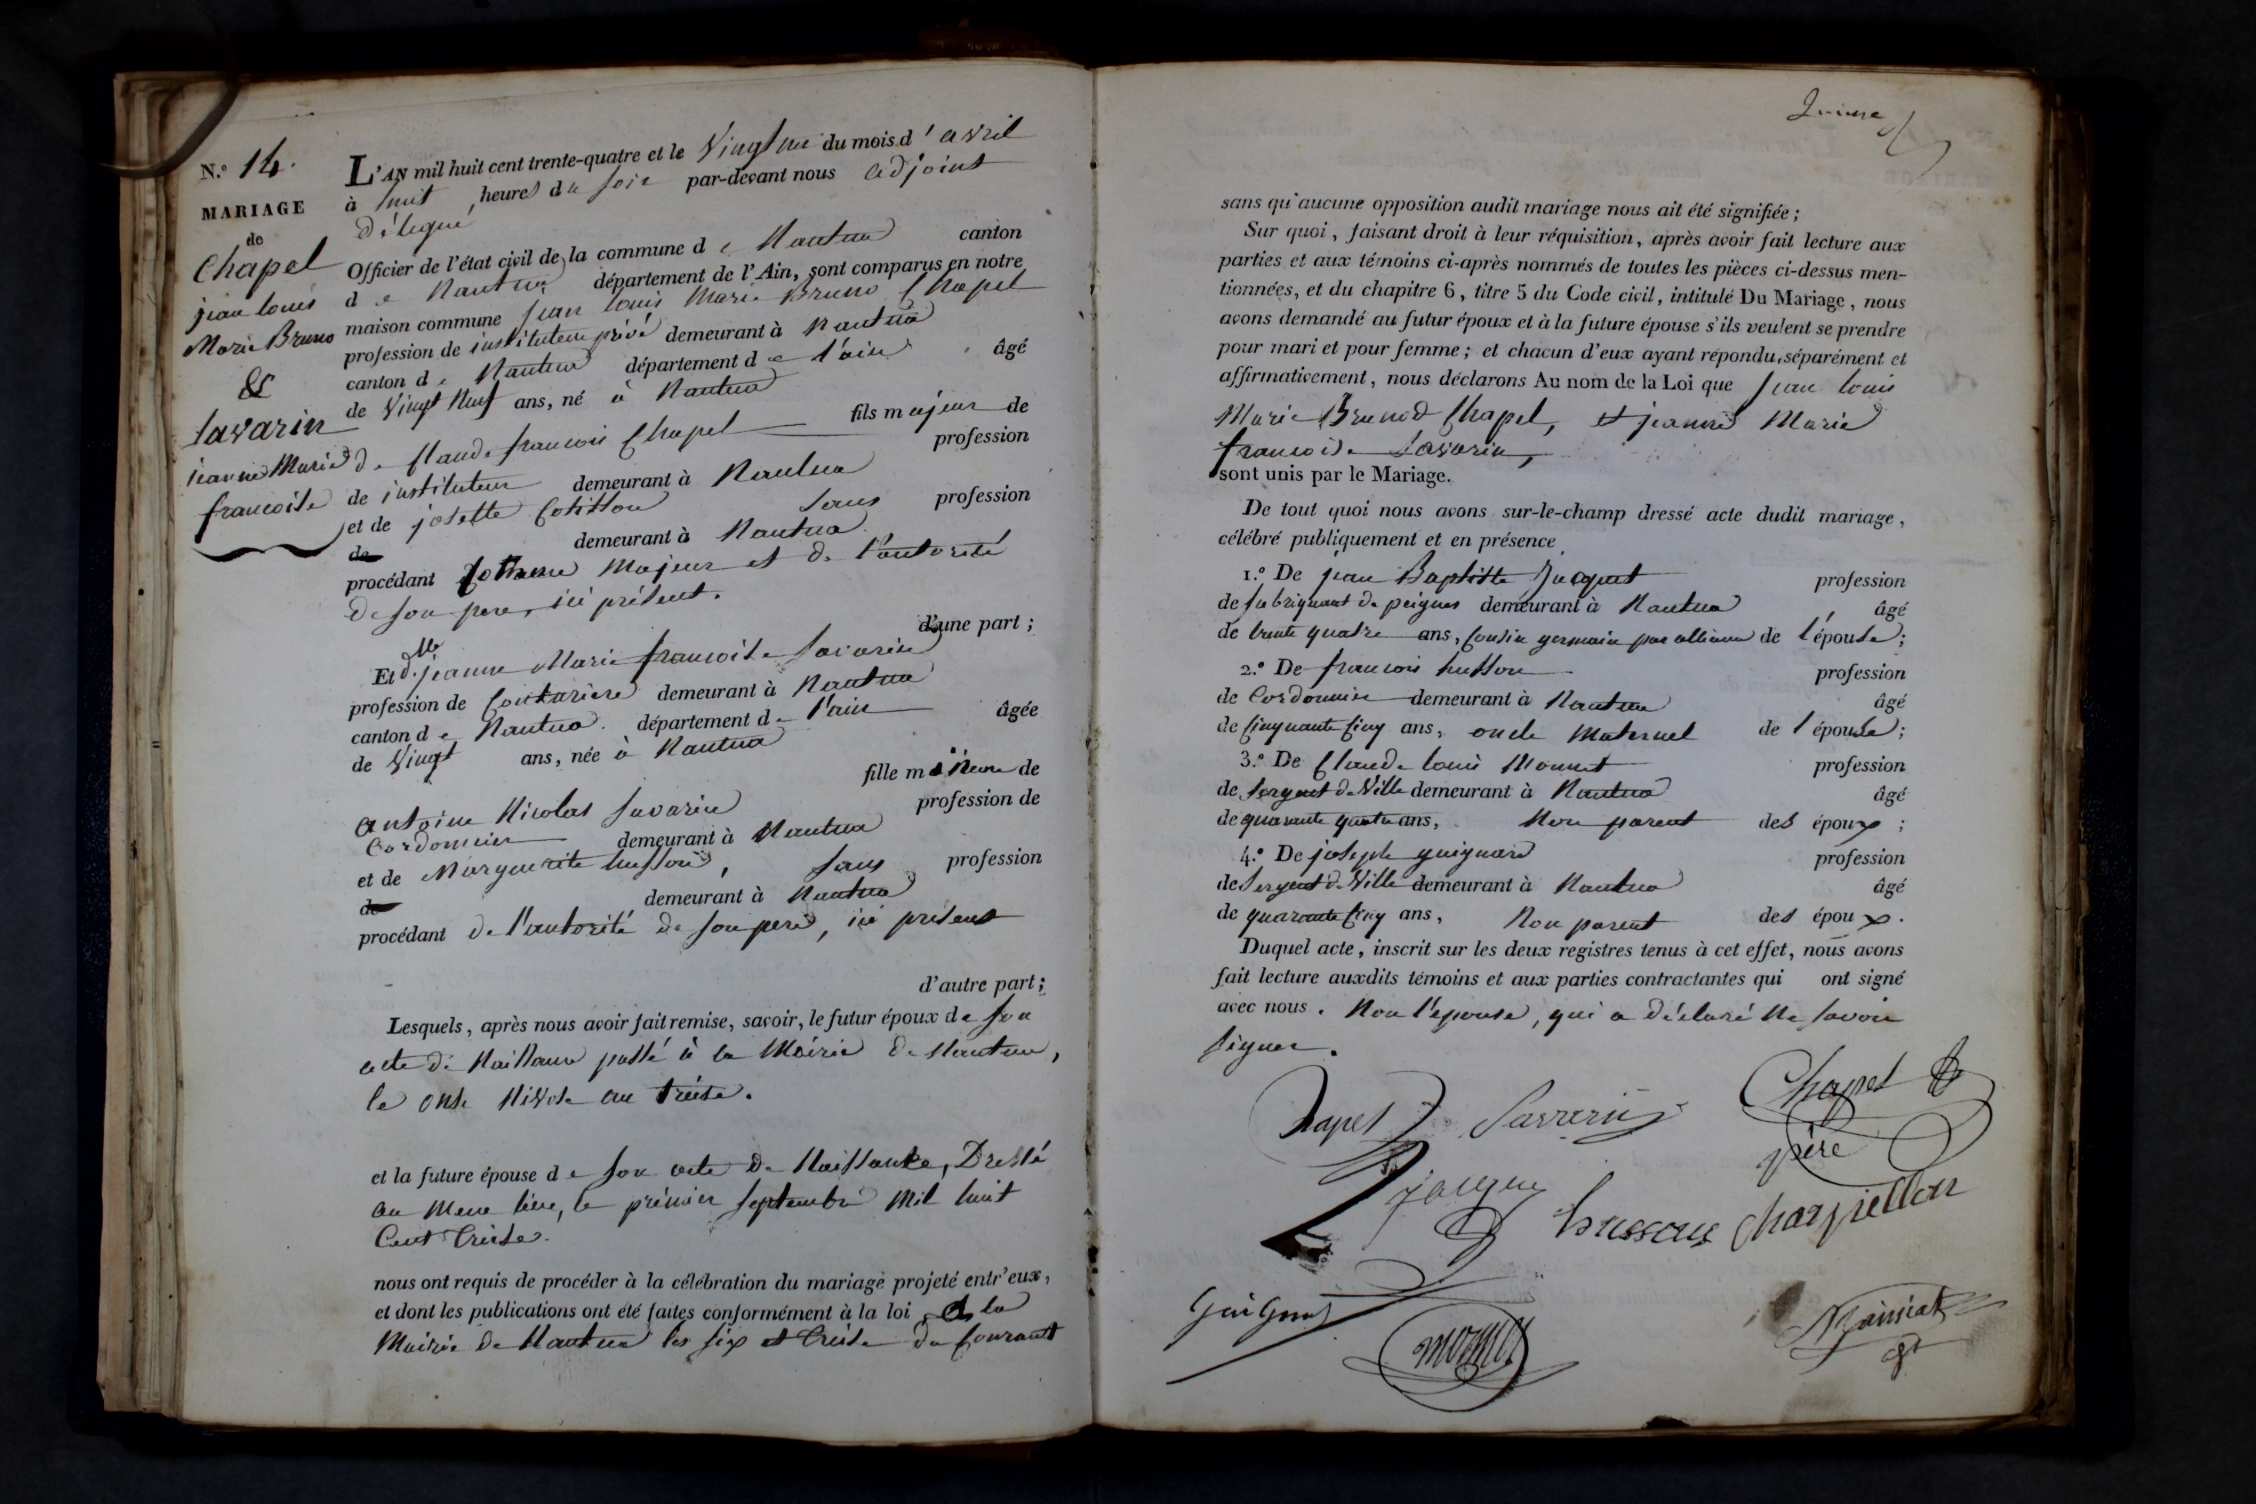 N.º 14.
MARIAGE
de
Chapel
jean louis
Marie Bruno
&
Savarin
jeanne Marie
francoise
L'AN mil huit cent trente-quatre et le Vingt un du mois d'avril
à huit heures du soir par-devant nous adjoint
délégué
Officier de l'état civil de la commune de Nantua canton
de Nantua département de l'Ain, sont comparus en notre
maison commune jean louis Marie Bruno Chapel
profession de instituteur privé demeurant à Nantua
canton de Nantua département de l'ain âgé
de Vingt Neuf ans, né à Nantua
fils majeur de
de Claude francois Chapel profession
de instituteur demeurant à Nantua
et de josette Cotisson sans profession
de demeurant à Nantua
procédant comme Majeur et de l'autorité
de son pere, ici présent.
d'une part;
Et dlle jeanne Marie francoise Savarin
profession de Couturiere demeurant à Nantua
canton de Nantua. département de l'ain âgée
de Vingt ans, née à Nantua
fille mineure de
antoine Nicolas Savarin profession de
Cordonnier demeurant à Nantua
et de Marguerite husson, sans profession
de demeurant à Nantua
procédant de l'autorité de son pere, ici présent
d'autre part;
Lesquels, après nous avoir fait remise, savoir, le futur époux de son
acte de Naissance passé à la Mairie de Nantua,
le onze Nivose an treize.
et la future épouse de son acte de Naissance, Dressé
au meme lieu, le prémier Septembre Mil huit
Cent treize.
nous ont requis de procéder à la célébration du mariage projeté entr'eux,
et dont les publications ont été faites conformément à la loi, à la
Mairie de Nantua les six et treize du Courant
sans qu'aucune opposition audit mariage nous ait été signifiée;
Sur quoi, faisant droit à leur réquisition, après avoir fait lecture aux
parties et aux témoins ci-après nommés de toutes les pièces ci-dessus men-
tionnées, et du chapitre 6, titre 5 du Code civil, intitulé Du Mariage, nous
avons demandé au futur époux et à la future épouse s'ils veulent se prendre
pour mari et pour femme; et chacun d'eux ayant répondu, séparément et
affirmativement, nous déclarons Au nom de la Loi que jean louis
Marie Bruno Chapel, et jeanne Marie
francoise Savarin,
sont unis par le Mariage.
De tout quoi nous avons sur-le-champ dressé acte dudit mariage,
célébré publiquement et en présence
1.º De jean Baptiste Jacquet profession
de fabriquant de peignes demeurant à Nantua âgé
de trente quatre ans, Cousin germain par alliance de l'épouse;
2.º De francois husson profession
de Cordonnier demeurant à Nantua âgé
de Cinquante Cinq ans, oncle Maternel de l'épouse;
3.º De Claude louis Monnet profession
de Sergent de Ville demeurant à Nantua âgé
de quarante quatre ans, Non parent des époux;
4.º De joseph guignard profession
de Sergent de Ville demeurant à Nantua âgé
de quarante Cinq ans, Non parent des époux.
Duquel acte, inscrit sur les deux registres tenus à cet effet, nous avons
fait lecture auxdits témoins et aux parties contractantes qui ont signé
avec nous. Non l'épouse, qui a déclaré Ne savoir
signer.
Chapel Savarin Chapel
père
husson Charpiellon